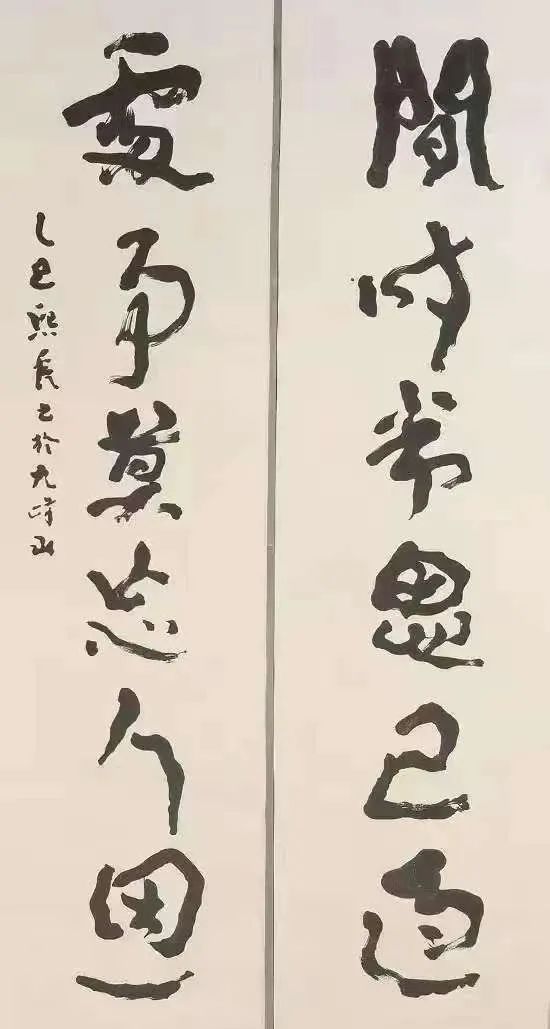 間时常思己過
處事莫忘人恩
乙巳熙书於九峰山